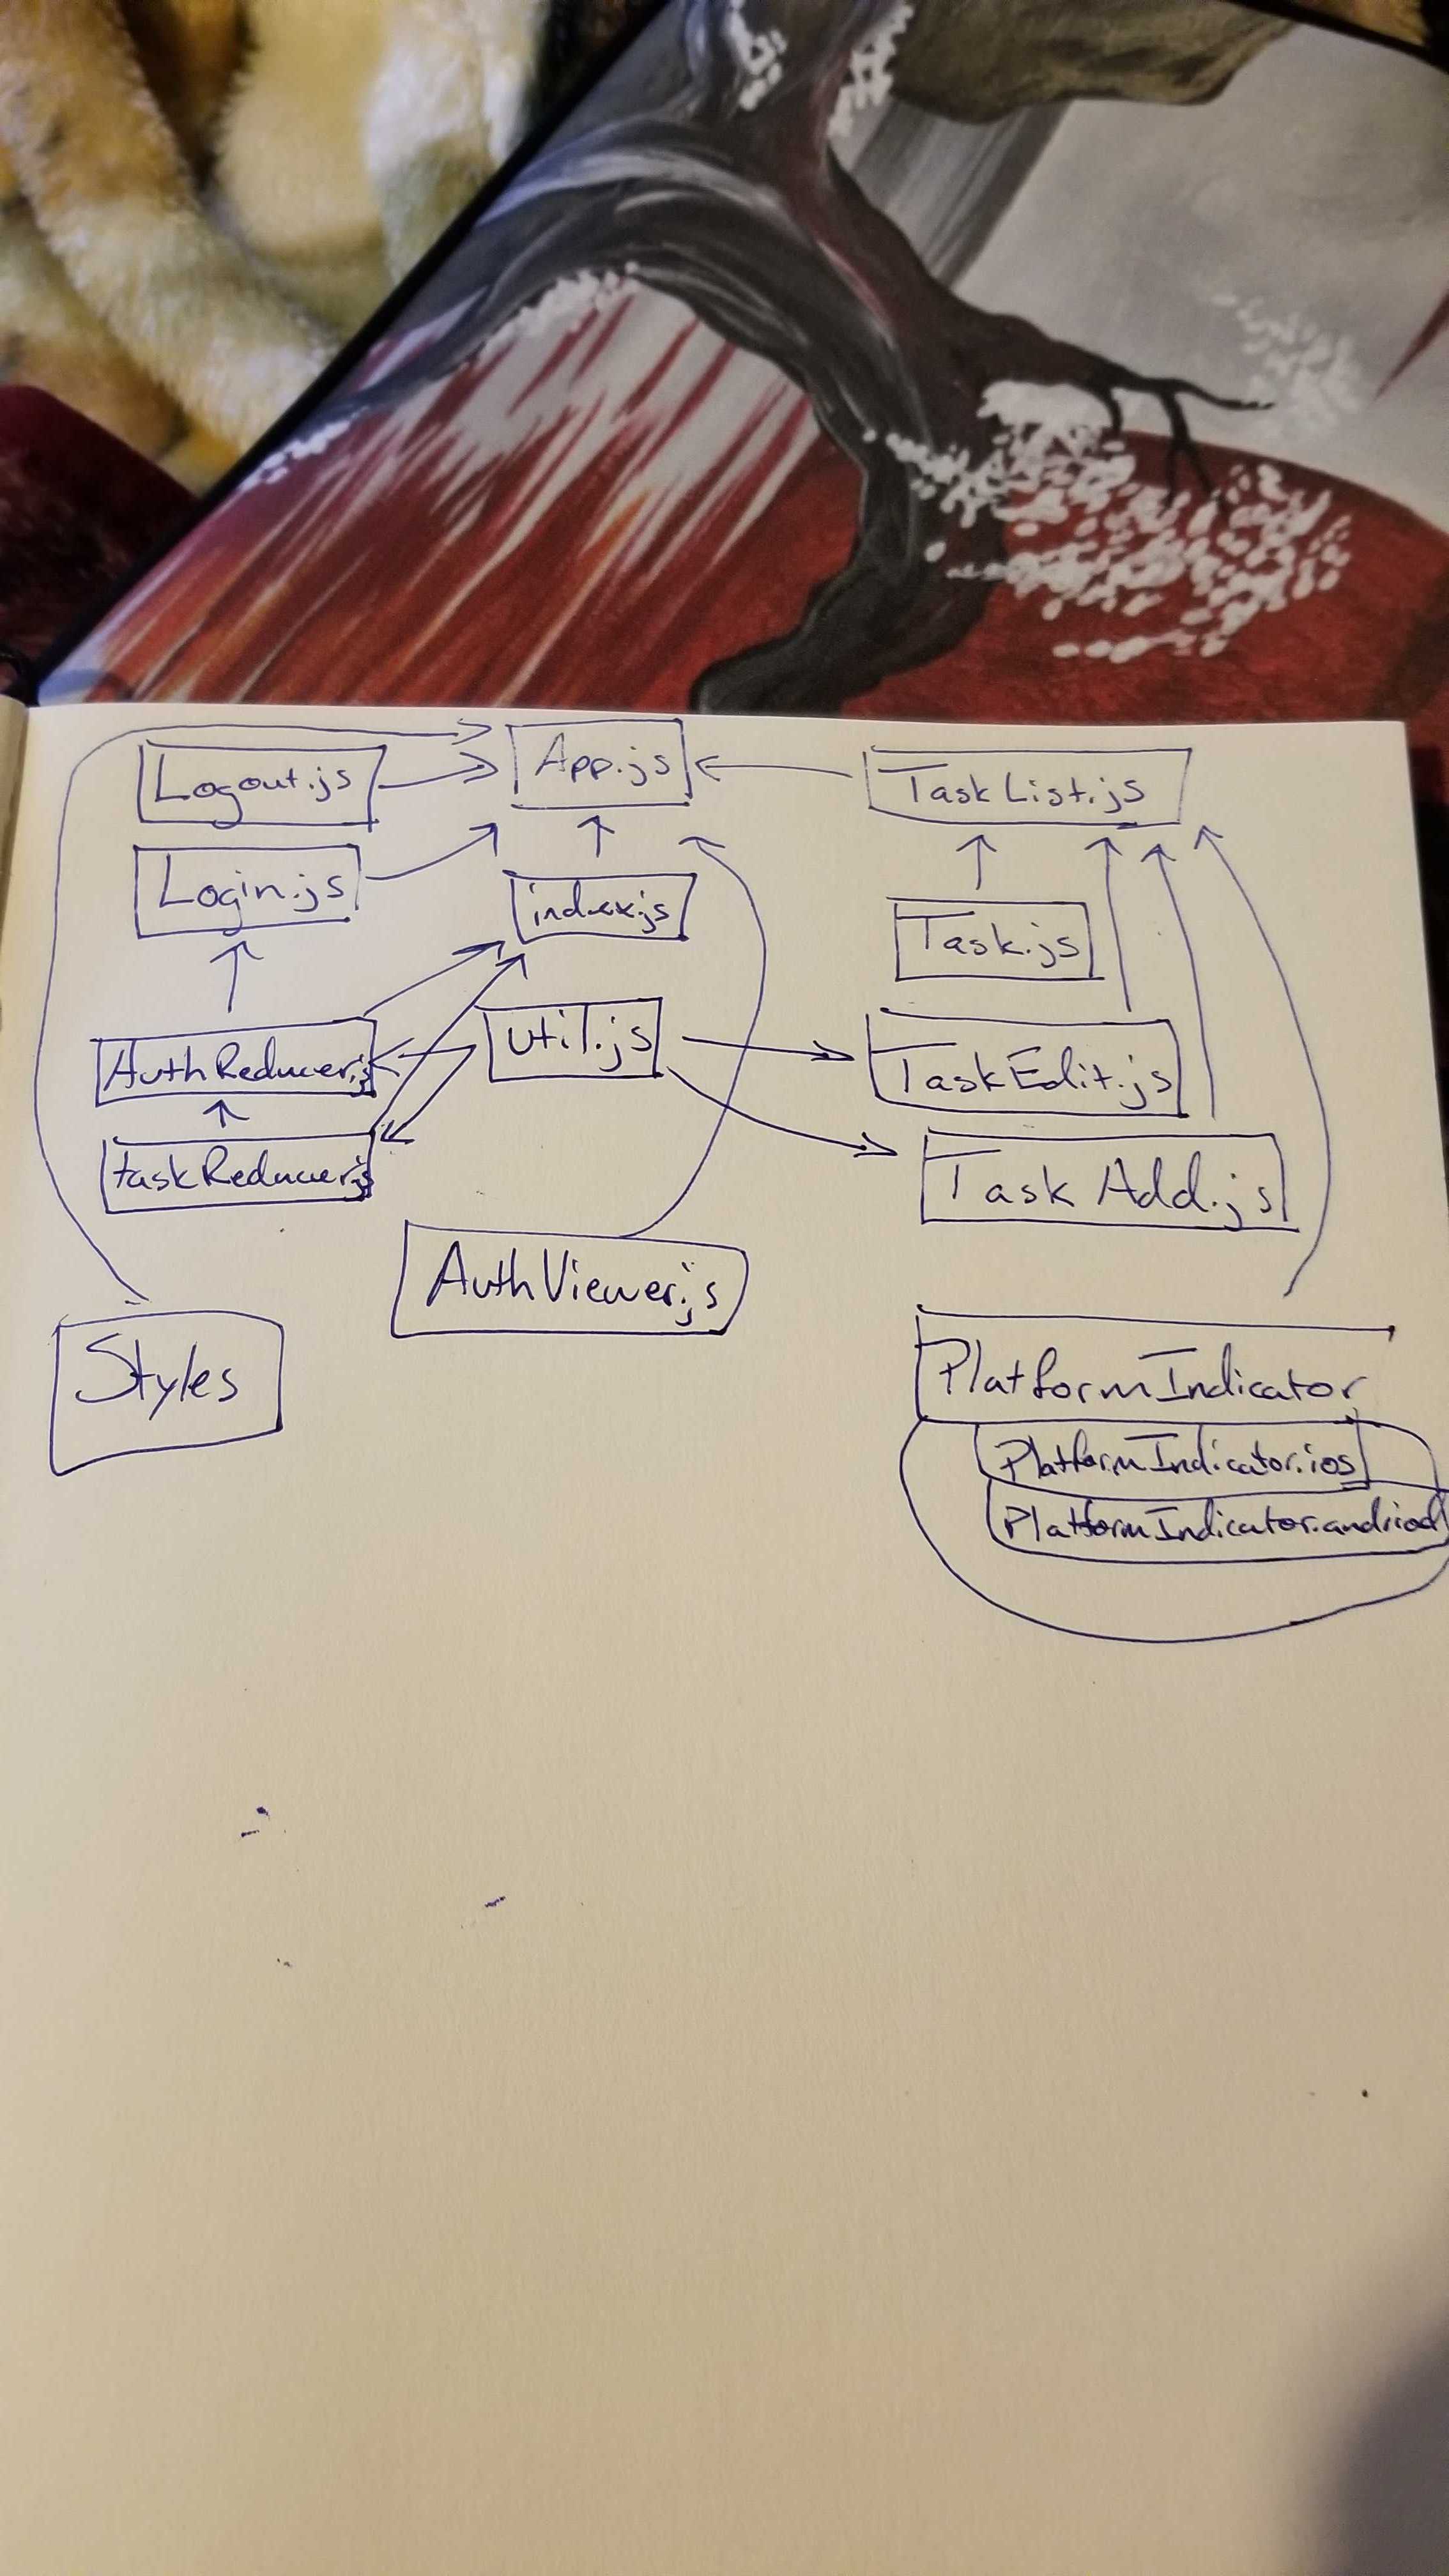 Logout.js
App.js
TaskList.js
Login.js
index.js
Task.js
AuthReducer.js
util.js
TaskEdit.js
taskReducer.js
TaskAdd.js
AuthViewer.js
Styles
PlatformIndicator
PlatformIndicator.ios
PlatformIndicator.andriod